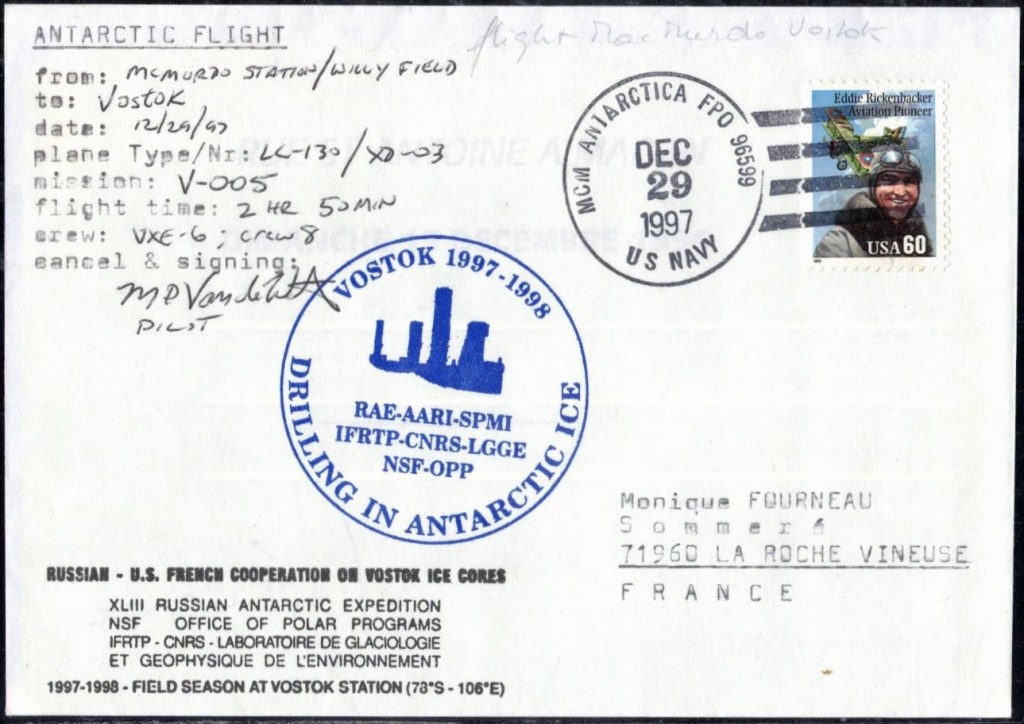 ANTARCTIC FLIGHT
flight Mac Murdo Vostok
from: MCMURDO STATION/WILLY FIELD
to: VOSTOK
date: 12/29/97
plane Type/Nr: LC-130/XD-03
mission: V-005
flight time: 2 HR 50 MIN
crew: VXE-6 CREW 8
cancel & signing:
PILOT
MCM ANTARCTICA FPO 96599
DEC
29
1997
US NAVY
Eddie Rickenbacker
Aviation Pioneer
USA 60
VOSTOK 1997-1998
RAE-AARI-SPMI
IFRTP-CNRS-LGGE
NSF-OPP
DRILLING IN ANTARCTIC ICE
Monique FOURNEAU
Sommeré
71960 LA ROCHE VINEUSE
FRANCE
RUSSIAN - U.S. FRENCH COOPERATION ON VOSTOK ICE CORES
XLIII RUSSIAN ANTARCTIC EXPEDITION
NSF OFFICE OF POLAR PROGRAMS
IFRTP - CNRS - LABORATOIRE DE GLACIOLOGIE
ET GEOPHYSIQUE DE L'ENVIRONNEMENT
1997-1998 - FIELD SEASON AT VOSTOK STATION (78°S - 106°E)